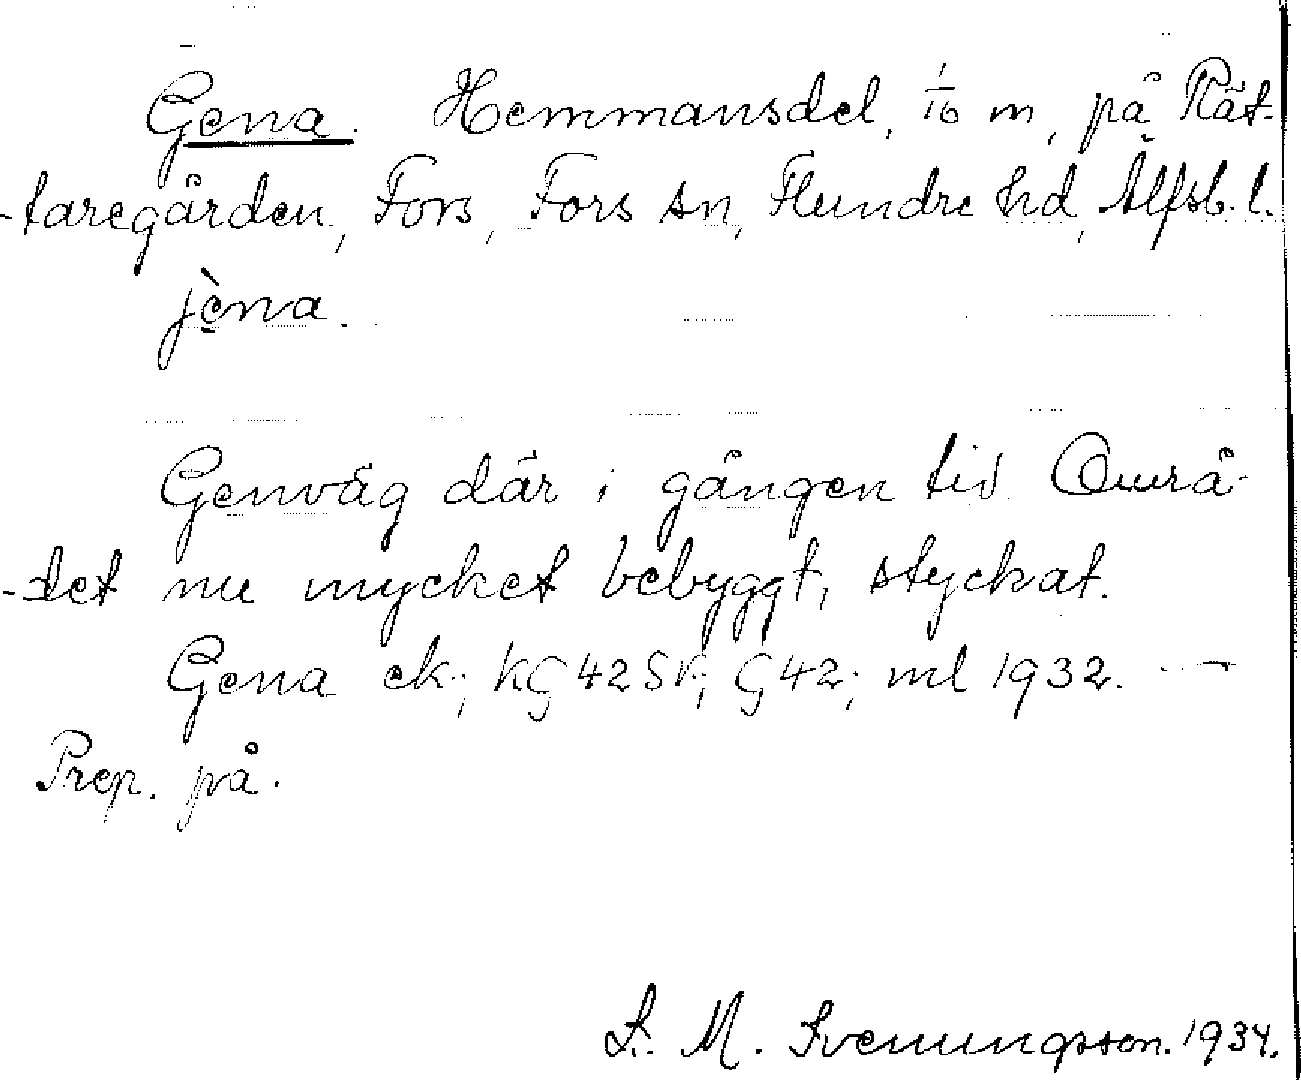 Gena. Hemmansdel, 1/16 m, på Rät-
-taregården, Fors, Fors sn, Flundre hd, Älfsb. l.
jèna.
Genväg där i gången tid Områ-
-det nu mycket bebyggt, styckat.
Gena ek; KG 42 SK; G 42; ml 1932. —
Prep. på.
S. M. Svenungsson. 1934.